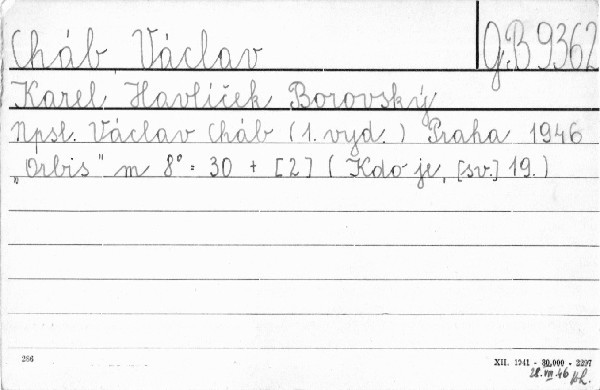 Cháb, Václav GB 9362
Karel Havlíček Borovský
Npsl. Václav Cháb (1. vyd.) Praha 1946
„Orbis" m 8° = 30 + [2] (Kdo je, [sv.] 19.)
286 XII. 1941 - 30.000 - 2297
28. VIII. 46